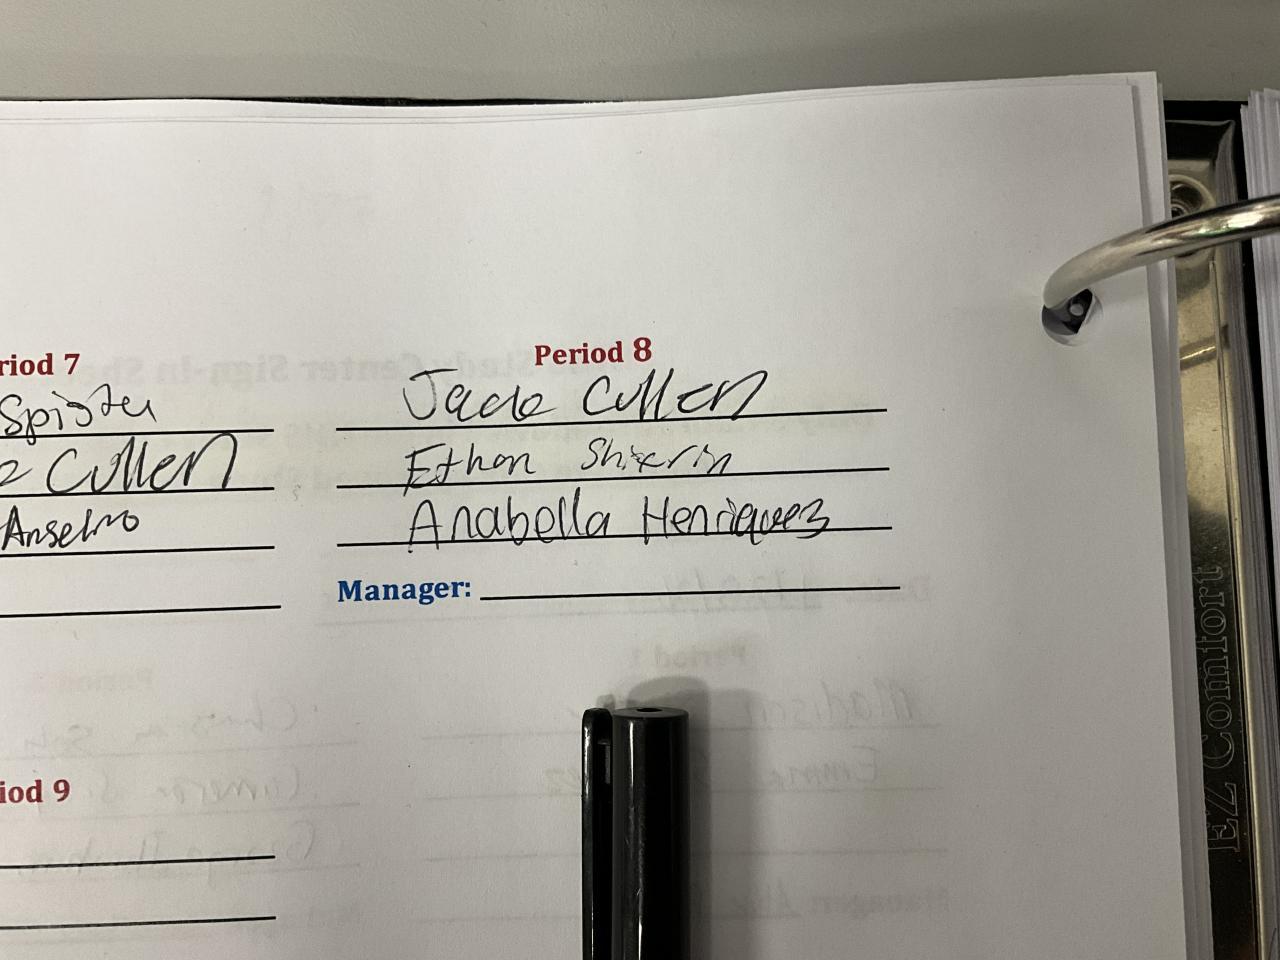 riod 7
Spister
Cullen
Anselmo
Period 8
Jade Cullen
Ethan
Anabella Henriquez
Manager:
iod 9
EZ Comfort